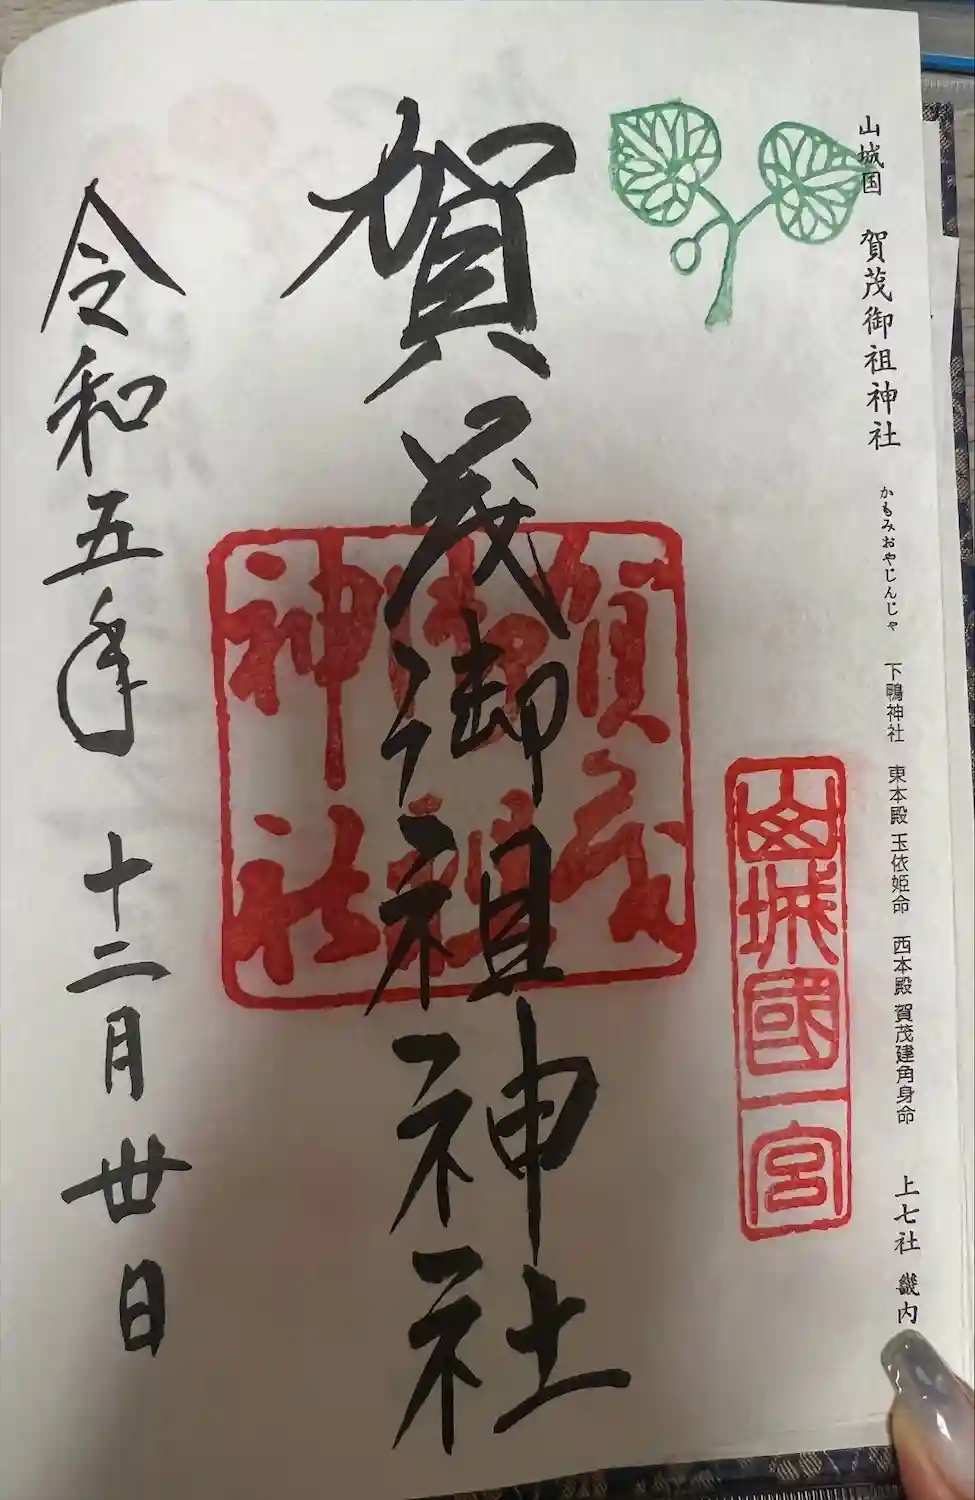 山城国 賀茂御祖神社 かもみおやじんじゃ 下鴨神社 東本殿 玉依姫命 西本殿 賀茂建角身命 上七社 畿内
山城國一宮
賀茂御祖神社
賀茂御祖神社
令和五年 十二月 丗日